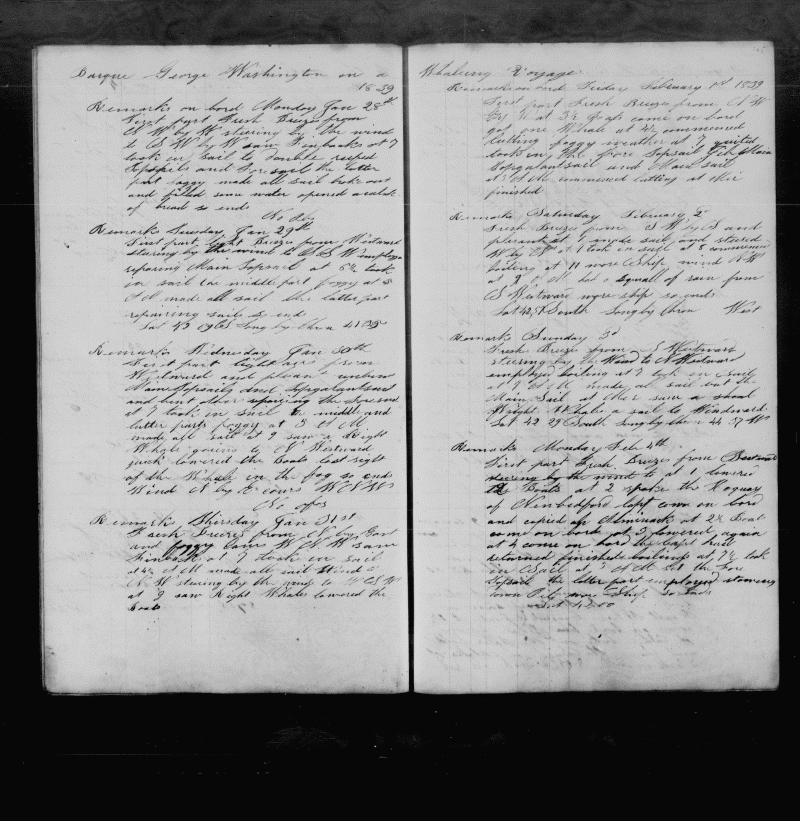 Barque George Washington on a
1839
Remarks on bord Monday Jan 28th
First part Fresh Breezes from
N W by W stering by the wind
to S W by W saw Finbacks at 7
took in sail to double reefed
Topsails and Foresail the latter
part foggy made all sail broke out
and filled some water opened a cask
of bread so ends
No Obs
Remarks Tuesday Jan 29th
First part light Breezes from Westward
stering by the wind to S S W employed
reparing Main Topsail at 6½ took
in sail the middle part foggy at 3
A M made all sail the latter part
repairing sails so ends
Lat 43 09 S Long by Chro
Remarks Wednesday Jan 30th
First part light airs from
Westward and plesant unbent
Main Topsails and Topgalantsail
and bent other reparing the Foresail
at 7 took in sail the middle and
latter parts foggy at 3 A M
made all sail at 9 saw a Right
Whale going to N Westward
quick lowered the Boats lost sight
of the Whale in the fog so ends
Wind N by E cours W N W
No obs
Remarks Thirsday Jan 31st
Fresh Breezes from N by East
and foggy cours W N W saw
Finbacks at 7 took in sail
at 4½ A M made all sail Wind
N W stering by the wind to W S W
at 9 saw Right Whales lowered the
Boats
Whaleing Voyage
Remarks on bord Friday February 1st 1839
First part Fresh Breezes from N W
by N at 3½ come on bord
got one Whale at 4½ commenced
cutting foggy weather at 7 quited
took in the Fore Topsail Jib Main
Topgalantsail and Main sail
at 3 A M commenced cutting at Mer
finished
Remarks Saturday February 2
Fresh Breezes from S W by S and
plesant at 1 made sail and steered
W by at 7 took in sail at 8 commenced
boiling at 11 wore Ship wind N W
at 9 A M had a squall of rain from
S Westward wore ship so ends
Lat 42,51 South Long by Chro West
Remarks Sunday 3d
Fresh Breezes from S Westward
steering by the Wind to N Westward
employed boiling at 7 took in sail
at 3 A M made all sail but the
Main Sail at Mer saw a shoal
Wright Whale a sail to Windward
Lat 42 29 South Long by Chro 44 57 W
Remarks Monday Feb 4th
First part Fresh Breezes from Westward
steering by the wind at 1 lowered
the Boats at 2 spoke the
of Newbedford Capt come on bord
and copied an Almenack at 2½ Boats
come on bord at 3 lowered again
at 4 come on bord the Capt
returned finished boiling at 7½ took
in Sail at A M set the Fore
Topsail the latter part employed stowing
down Oil wore Ship so ends
Lat